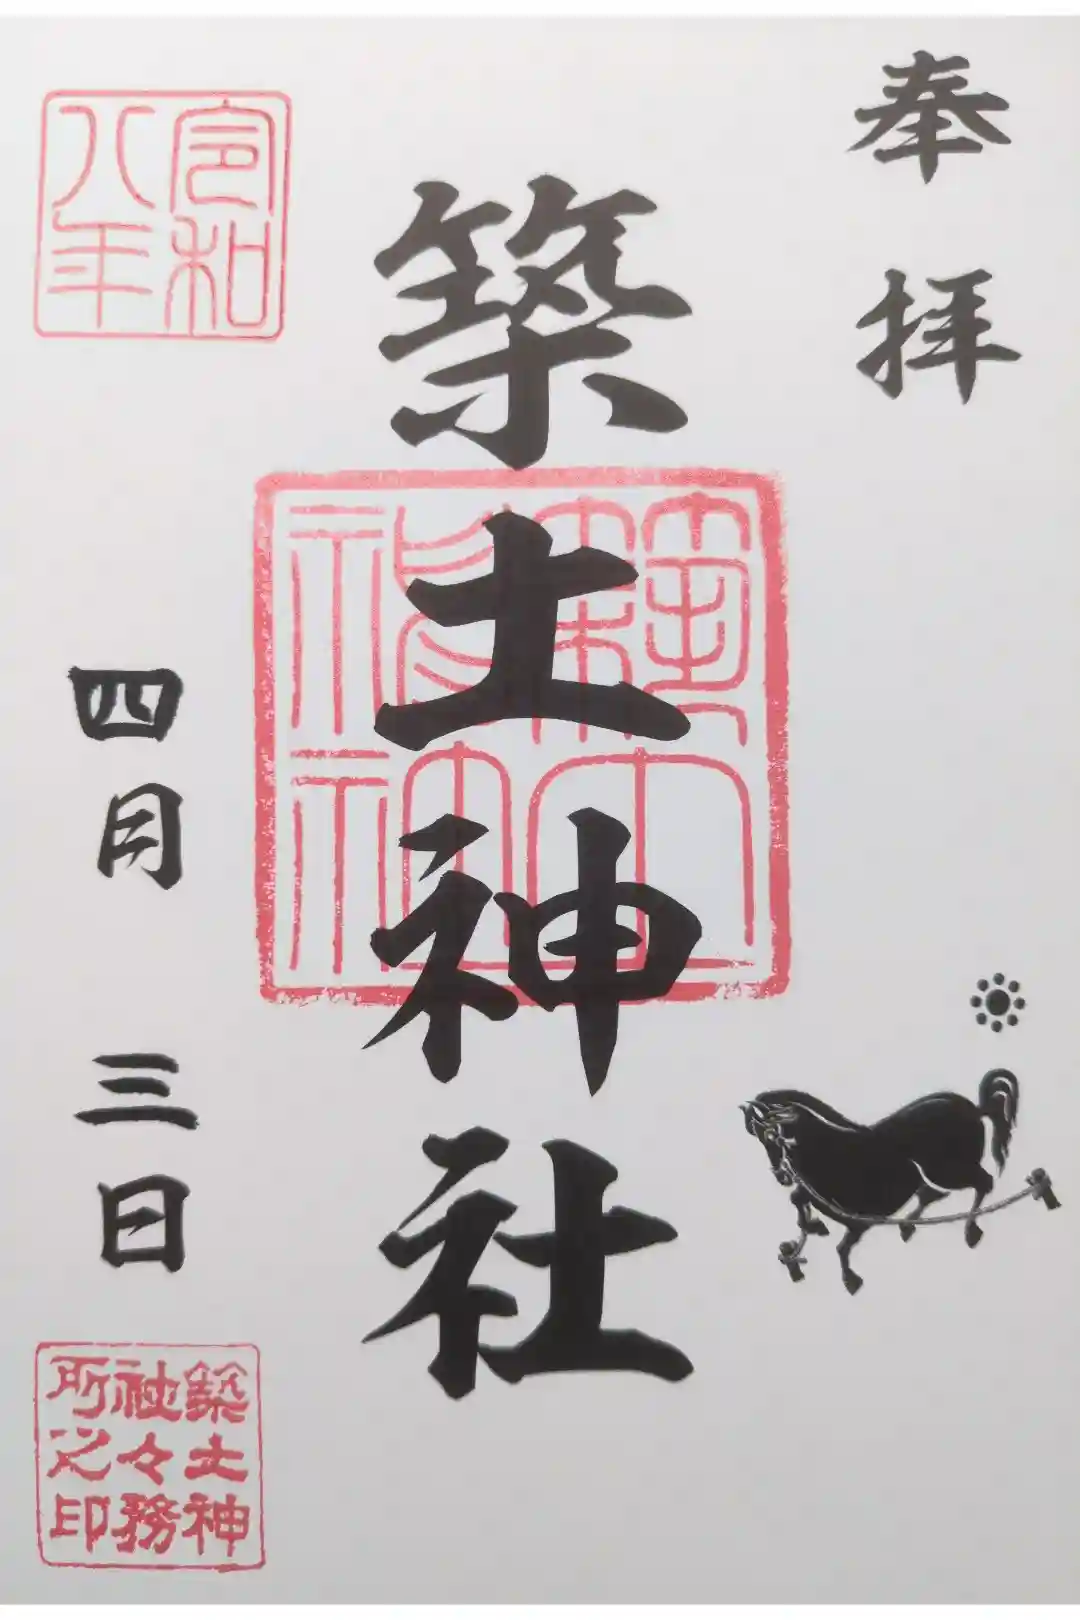 奉拝
築土神社
令和
八年
四月三日
築土神
社々務
所之印